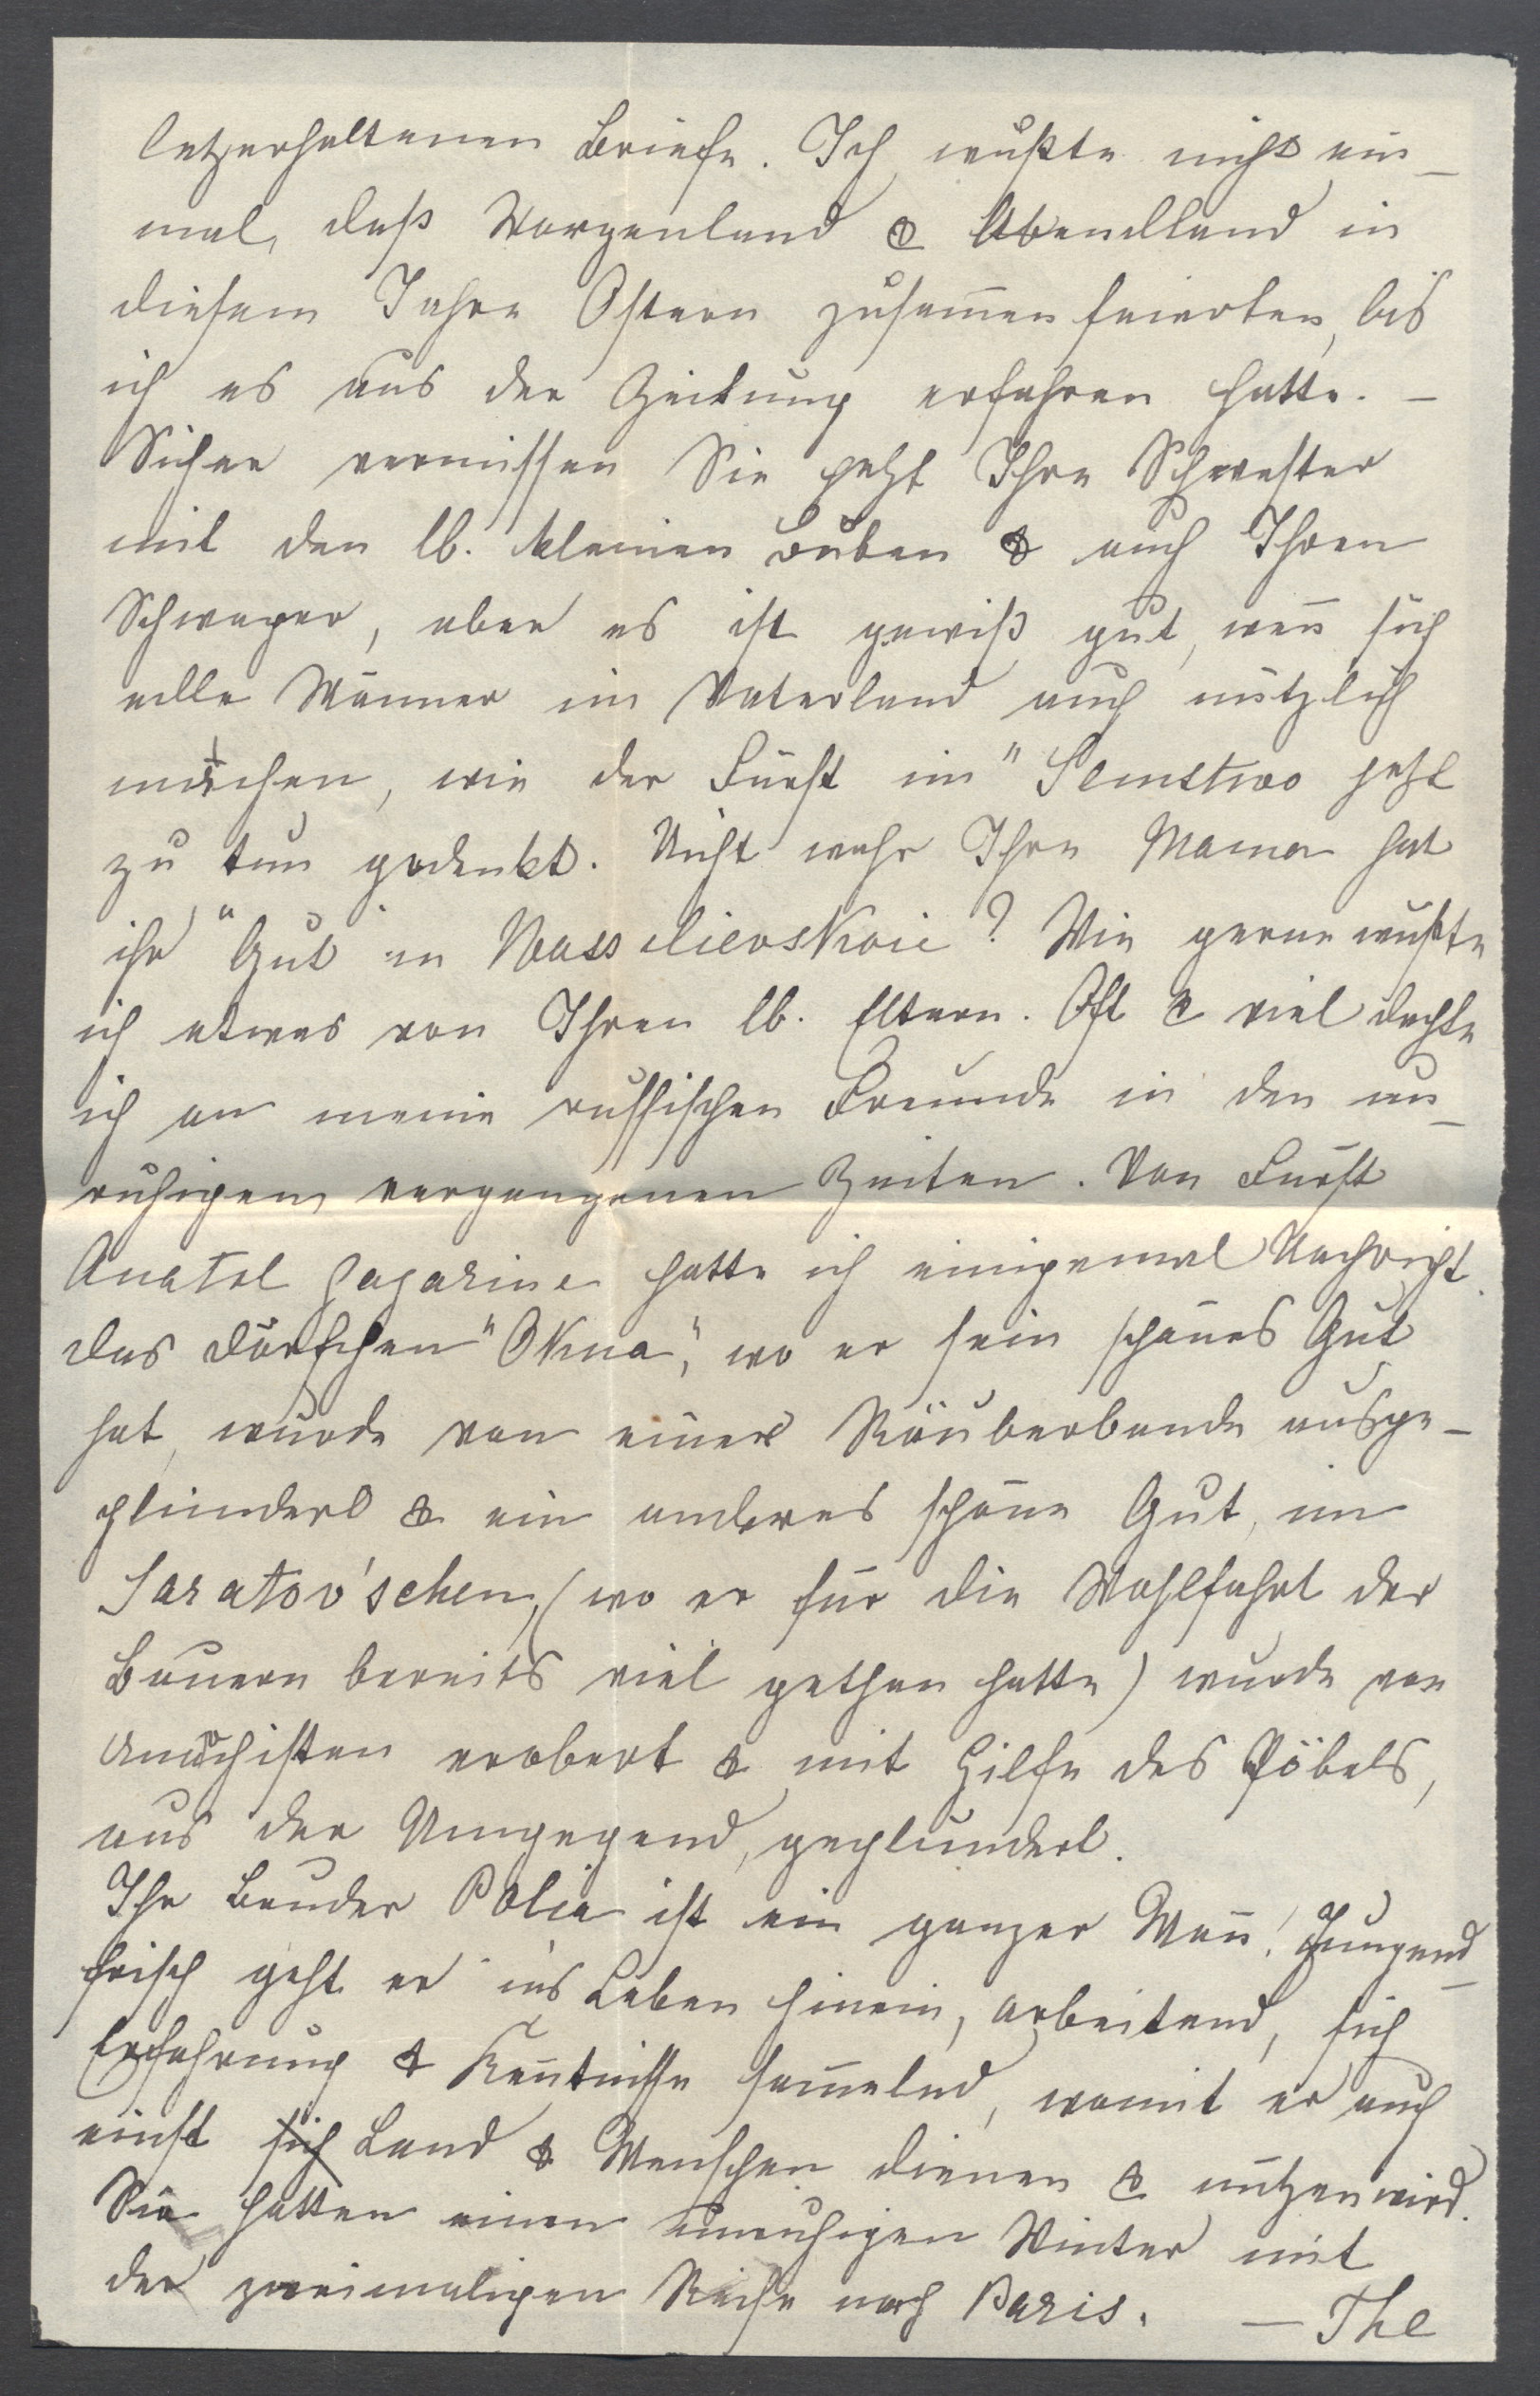 letzerhaltenen Briefe. Ich wußte nicht ein-
mal, daß Morgenland & Abendland in
diesem Jahre Ostern zusam̄en feierten, bis
ich es aus der Zeitung erfahren hatte. —
Sicher vermissen Sie jetzt Ihre Schwester
mit den lb. kleinen Buben & auch Ihren
Schwager, aber es ist gewiß gut, wen̄ sich
edle Männer im Vaterland auch nützlich
machen, wie der Fürst im "Semstwo jetzt
zu tun gedenkt. Nicht wahr Ihre Mama hat
ihr Gut in Wassilievskoie? Wie gerne wüßte
ich etwas von Ihren lb. Eltern. Oft & viel dachte
ich an meine russischen Freunde in den un-
ruhigen, vergangenen Zeiten. Von Fürst
Anatol Gagarine hatte ich einigemal Nachricht.
Das Dörfchen "Okna", wo er sein schönes Gut
hat, wurde von einer Räuberbande ausge-
plündert & ein anderes schöne Gut, im
Saratov'schen, (wo er für die Wohlfahrt der
Bauern bereits viel gethan hatte) wurde von
Anarchisten erobert & mit Hilfe des Pöbels,
aus der Umgegend, geplündert.
Ihr Bruder Polia ist ein ganzer Man̄! Jungend-
frisch geht er in's Leben hinein, arbeitend, sich
Erfahrung & Ken̄tnisse sam̄elnd, womit er auch
einst sich Land & Menschen dienen & nützen wird.
Sie hatten einen unruhigen Winter mit
der zweimaligen Reise nach Paris. — The